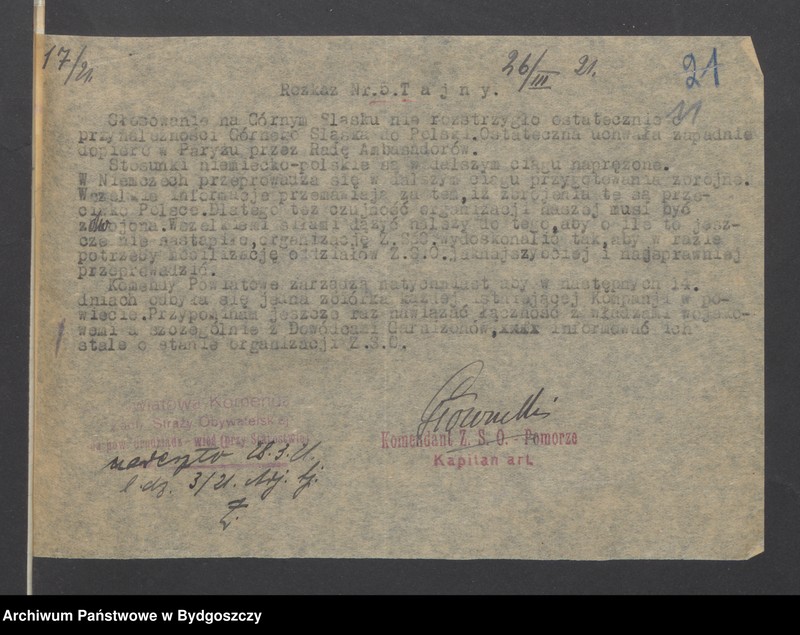 17/21.
26/III 21.
21
11
Rozkaz Nr.5.T a j n y.
Głosowanie na Górnym Sląsku nie rozstrzygło ostatecznie o
przynależności Górnego Sląska do Polski.Ostateczna uchwała zapadnie
dopiero w Paryżu przez Radę Ambasadorów.
Stosunki niemiecko-polskie są w dalszym ciągu naprężone.
W Niemczech przeprowadza się w dalszym ciągu przygotowania zbrojne.
Wszelkie informacje przemawiają za tem,iż zbrojenia te są prze-
ciwko Polsce.Dlatego też czujność organizacji naszej musi być
zdwojona.Wszelkiemi siłami dążyć należy do tego,aby o ile to jesz-
cze nie nastąpiło,organizację Z.S.O.wydoskonalić tak,aby w razie
potrzeby mobilizację oddziałów Z.S.O.jaknajszybciej i najsprawniej
przeprowadzić.
Komendy Powiatowe zarządzą natychmiast aby w następnych 14.
dniach odbyła się jedna zbiórka każdej istniejącej Kompanji w po-
wiecie.Przypominam jeszcze raz nawiązać łączność z władzami wojsko-
wemi a szczególnie z Dowódcami Garnizonów, informować ich
stale o stanie organizacji Z.S.O.
Komenda
Zach. Straży Obywatelskiej
Komendant Z. S. O. Pomorze
Kapitan art.
nadeszło 28.3.21.
l.dz. 3/21. Adj. tj.
Archiwum Państwowe w Bydgoszczy